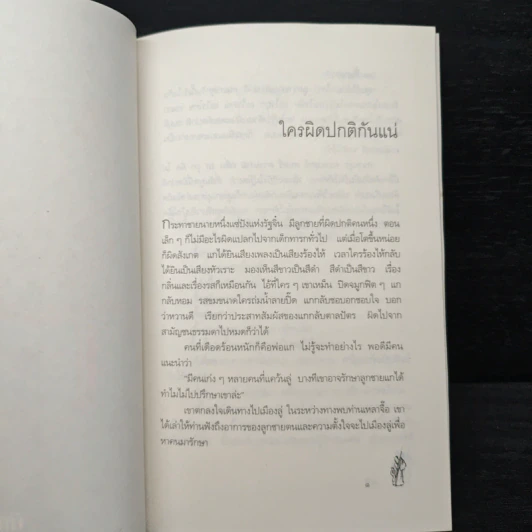 ใครผิดปกติกันแน่
กระทาชายนายหนึ่งแซ่ปังแห่งรัฐจิ๋น มีลูกชายที่ผิดปกติคนหนึ่ง ตอน
เล็ก ๆ ก็ไม่มีอะไรผิดแปลกไปจากเด็กทารกทั่วไป แต่เมื่อโตขึ้นหน่อย
ก็ผิดสังเกต แกได้ยินเสียงเพลงเป็นเสียงร้องไห้ เวลาใครร้องไห้กลับ
ได้ยินเป็นเสียงหัวเราะ มองเห็นสีขาวเป็นสีดำ สีดำเป็นสีขาว เรื่อง
กลิ่นและเรื่องรสก็เหมือนกัน ไอ้ที่ใคร ๆ เขาเหม็น ปิดจมูกฟิด ๆ แก
แกกลับหอม รสขมขนาดใครถ่มน้ำลายปี๊ด แกกลับชอบอกชอบใจ บอก
ว่าหวานดี เรียกว่าประสาทสัมผัสของแกกลับตาลปัตร ผิดไปจาก
สามัญชนธรรมดาไปหมดก็ว่าได้
คนที่เดือดร้อนหนักก็คือพ่อแก ไม่รู้จะทำอย่างไร พอดีมีคน
แนะนำว่า
"มีคนเก่ง ๆ หลายคนที่แคว้นลู่ บางทีเขาอาจรักษาลูกชายแกได้
ทำไมไม่ไปปรึกษาเขาล่ะ"
เขาตกลงใจเดินทางไปเมืองลู่ ในระหว่างทางพบท่านเหลาจื๊อ เขา
ได้เล่าให้ท่านฟังถึงอาการของลูกชายตนและความตั้งใจจะไปเมืองลู่เพื่อ
หาคนมารักษา